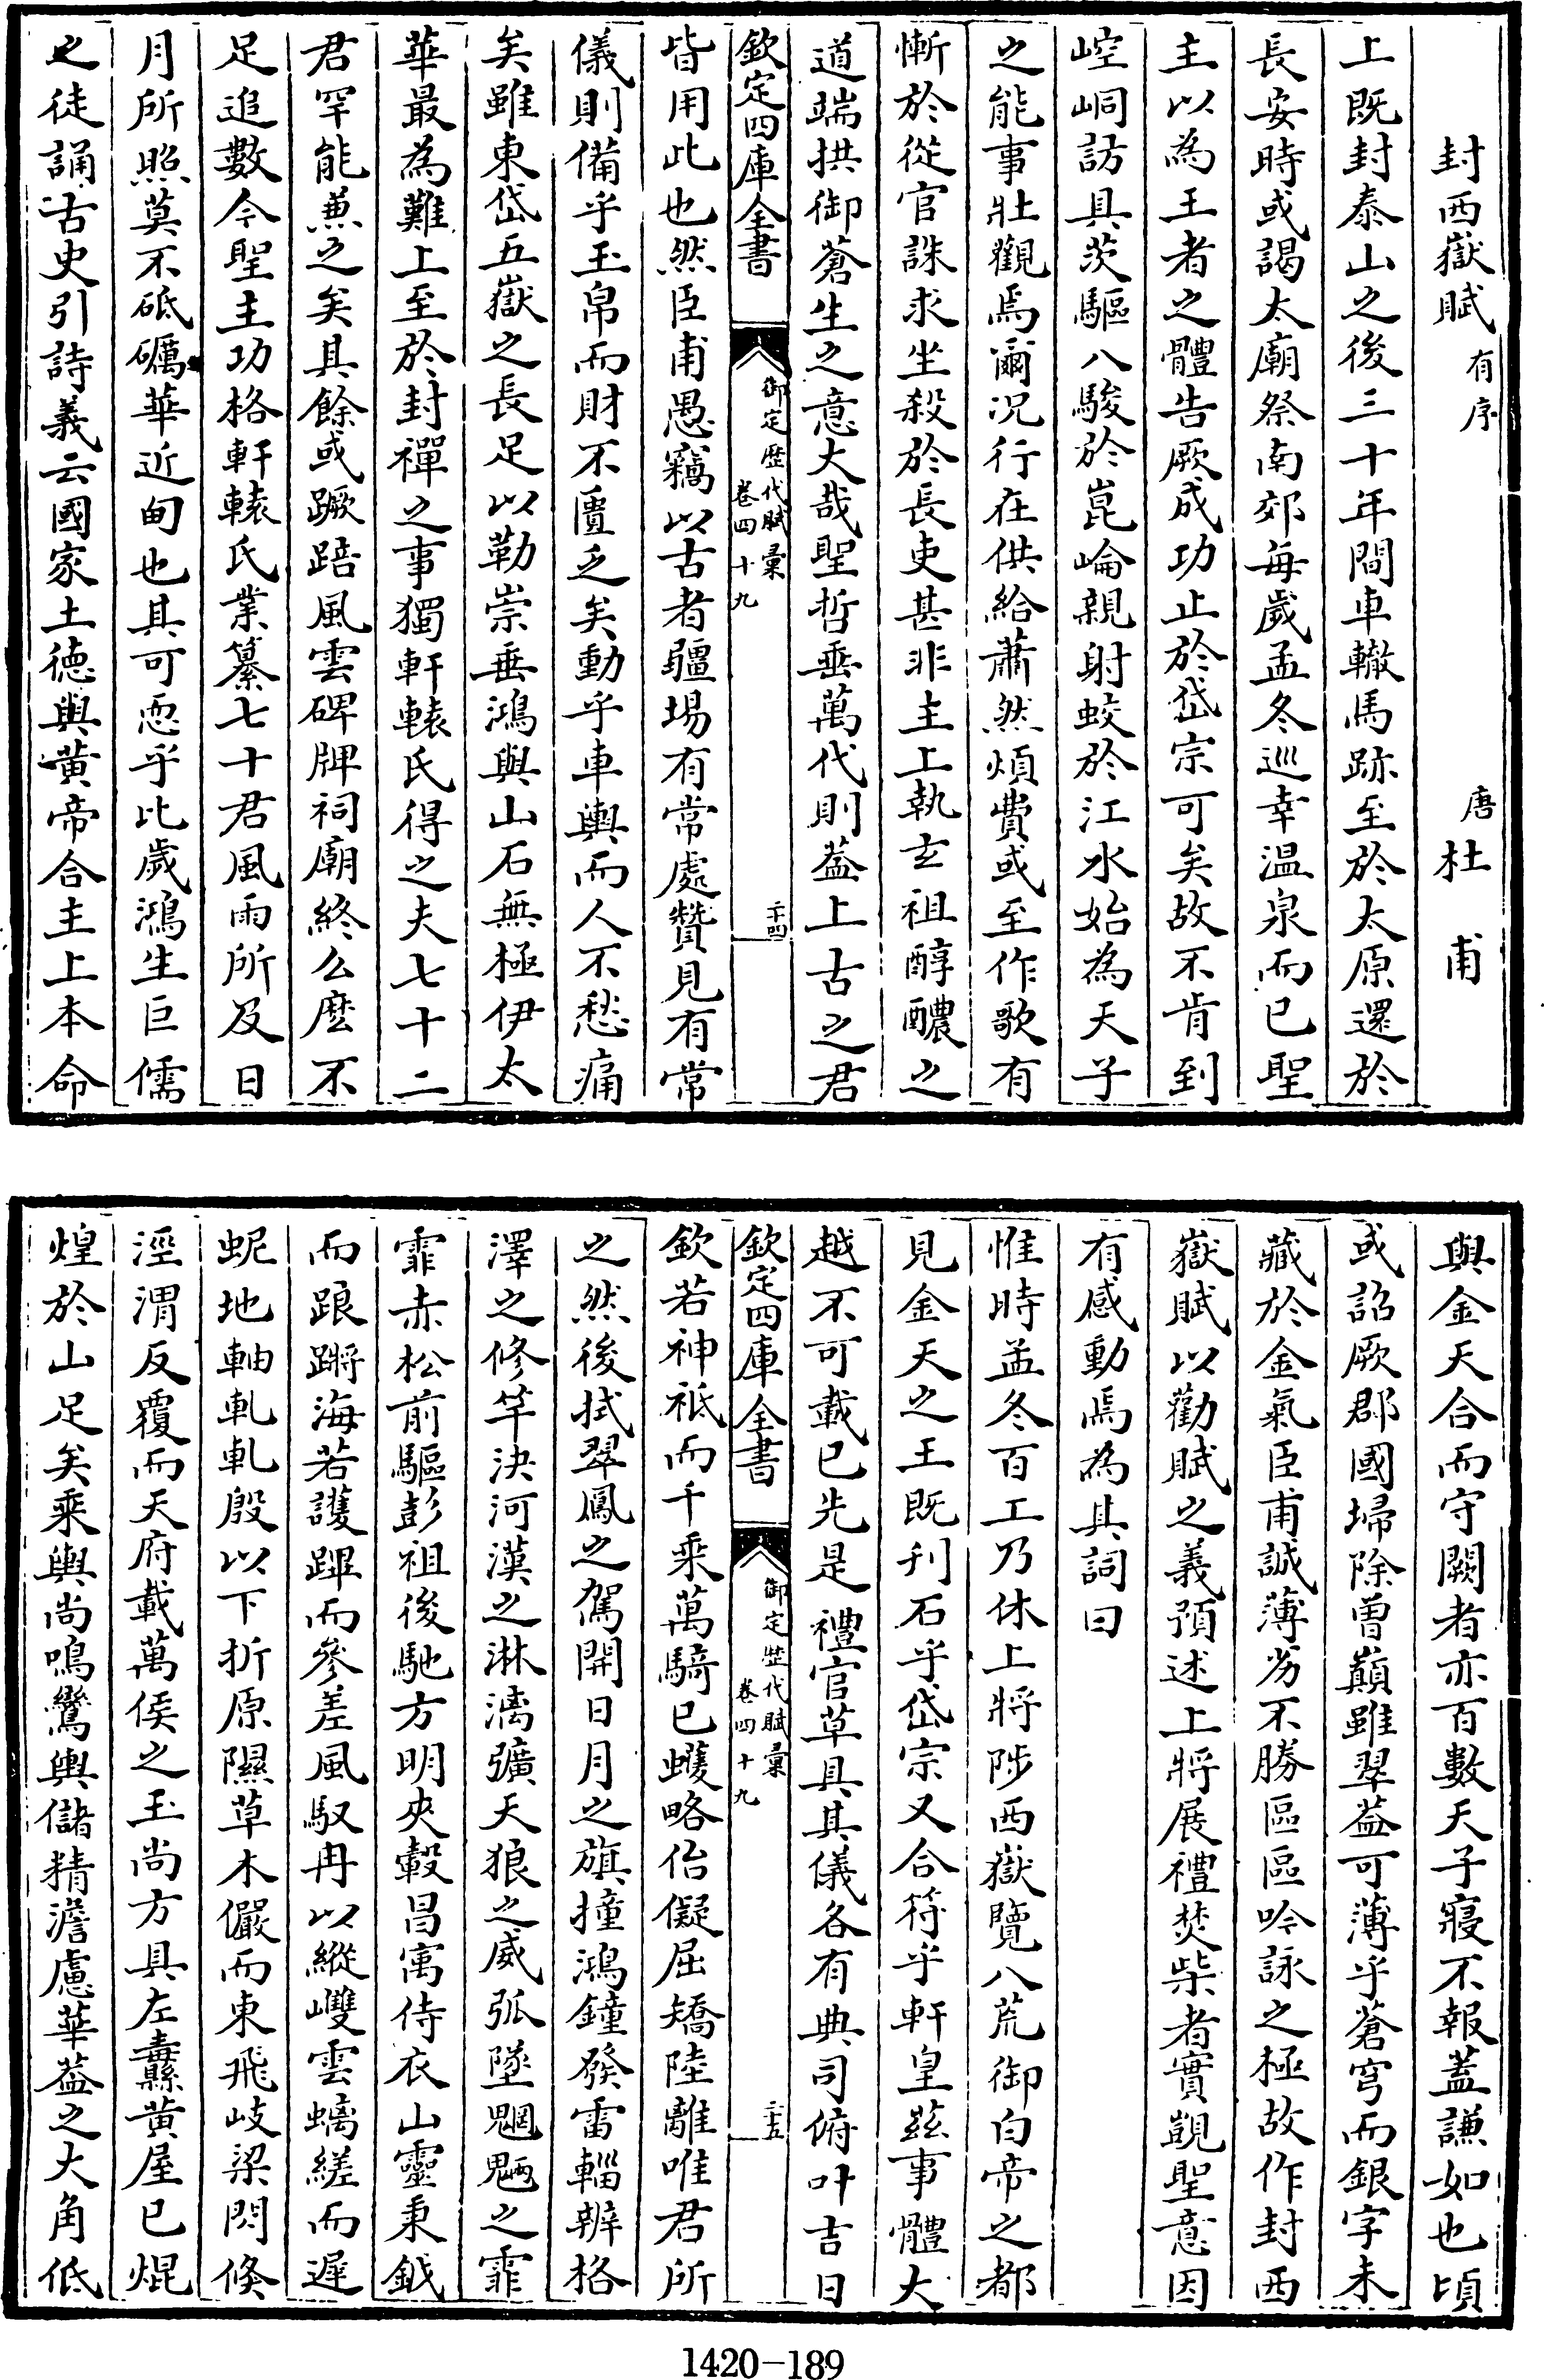 封西嶽賦有序　唐杜甫
上既封泰山之後三十年間車轍馬跡至於太原還於
長安時或謁太廟祭南郊每歲孟冬巡幸温泉而已聖
主以為王者之體告厥成功止於岱宗可矣故不肯到
崆峒訪具茨驅八駿於崑崙親射蛟於江水始為天子
之能事壯觀焉爾况行在供給蕭然煩費或至作歌有
慚於從官誅求坐殺於長吏甚非主上執玄祖醇醲之
道端拱御蒼生之意大哉聖哲垂萬代則蓋上古之君
欽定四庫全書　御定歴代賦彙　卷四十九　二十四
皆用此也然臣甫愚竊以古者疆埸有常處贊見有常
儀則備乎玉帛而財不匱乏矣動乎車輿而人不愁痛
矣雖東岱五嶽之長足以勒崇垂鴻與山石無極伊太
華最為難上至於封禪之事獨軒轅氏得之夫七十二
君罕能兼之矣其餘或蹶踣風雲碑牌祠廟終么麽不
足追數今聖主功格軒轅氏業纂七十君風雨所及日
月所照莫不砥礪華近甸也其可恧乎比歲鴻生巨儒
之徒誦古史引詩義云國家土德與黄帝合主上本命
與金天合而守闕者亦百數天子寢不報蓋謙如也頃
或詔厥郡國埽除曽巔雖翠蓋可薄乎蒼穹而銀字未
藏於金氣臣甫誠薄劣不勝區區吟詠之極故作封西
嶽賦以勸賦之義預述上將展禮焚柴者實覬聖意因
有感動焉為其詞曰
惟時孟冬百工乃休上將陟西嶽覽八荒御白帝之都
見金天之王既刋石乎岱宗又合符乎軒皇兹事體大
越不可載已先是禮官草具其儀各有典司俯叶吉日
欽定四庫全書　御定歴代賦彙　卷四十九　二十五
欽若神祇而千乘萬騎已蠖略佁儗屈矯陸離唯君所
之然後拭翠鳳之駕開日月之旗撞鴻鐘發雷輜辨格
澤之修竿決河漢之淋漓彍天狼之威弧墜魍魎之霏
霏赤松前驅彭祖後馳方明夾轂昌㝢侍衣山靈秉鉞
而踉蹡海若護蹕而參差風馭冉以縱㩳雲螭縒而遲
蜺地軸軋軋殷以下折原隰草木儼而東飛岐梁閃倏
涇渭反覆而天府載萬侯之玉尚方具左纛黄屋已焜
煌於山足矣乘輿尚鳴鸞輿儲精澹慮華蓋之大角低
1420-189